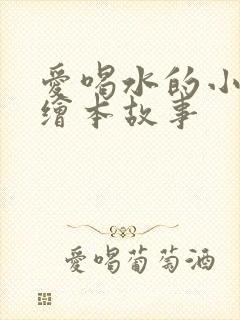 愛喝水的小
繪本故事
愛喝葡萄酒